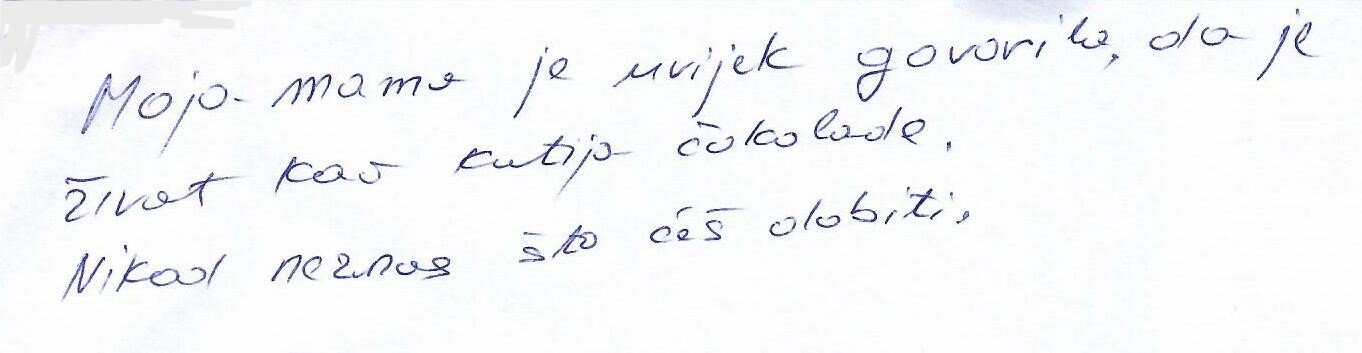 Moja mama je uvijek govorila, da je
život kao kutija čokolade.
Nikad neznas što ćeš dobiti.